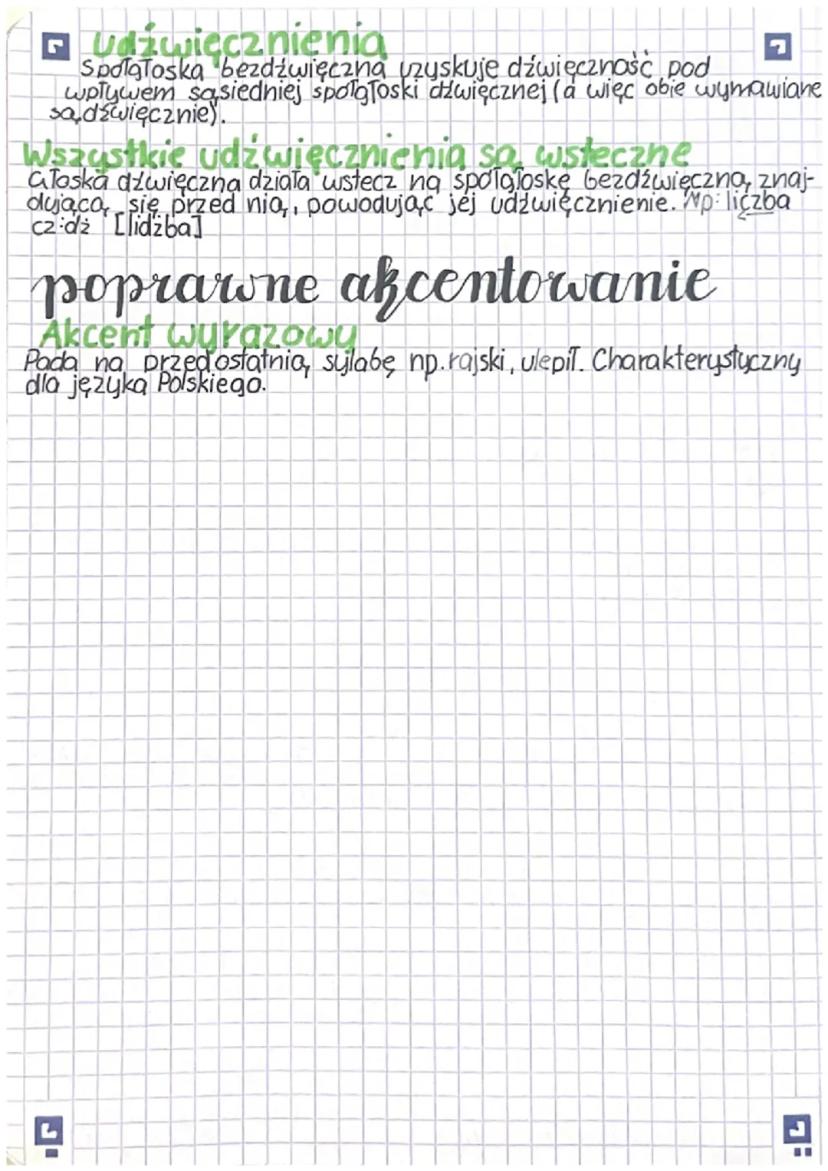 udźwięcznienia
Spółgłoska bezdźwięczna uzyskuje dźwięczność pod
wpływem sąsiedniej spółgłoski dźwięcznej (a więc obie wymawiane
są dźwięcznie).
Wszystkie udźwięcznienia są wsteczne
Głoska dźwięczna działa wstecz na spółgłoskę bezdźwięczną, znaj-
dującą się przed nią, powodując jej udźwięcznienie. Np: liczba
cz:dż [lidżba]
poprawne akcentowanie
Akcent wyrazowy
Pada na przedostatnią sylabę np. rajski, ulepił. Charakterystyczny
dla języka Polskiego.